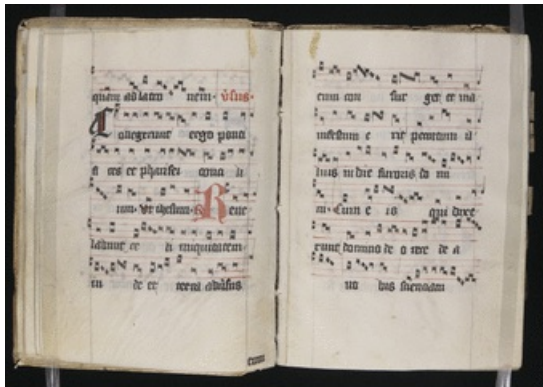 quam ad latro nem. v̄sus.
Collegerunt ergo ponti
fi ces et pharisei conci li
um. Vt ihesum. Reue
labunt ce li iniquitatem
iu de et terra adūsus
eum con sur get et ma
nifestum e rit peccatum il
lius in die furoris do mi
ni. Cum e is qui dixe
runt domino de o rece de a
no bis scientiam